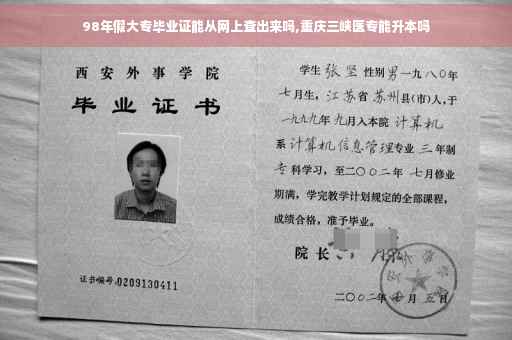 98年假大专毕业证能从网上查出来吗,重庆三峡医专能升本吗
西安外事学院
毕业证书
证书编号:0209130411
学生 张坚 性别男 一九八〇年
七月生，江苏省苏州县(市)人，于
一九九九年九月入本院 计算机
系 计算机信息管理专业 三年制
专科学习，至二〇〇二年七月修业
期满，学完教学计划规定的全部课程，
成绩合格，准予毕业。
院长
二〇〇二年 月五日